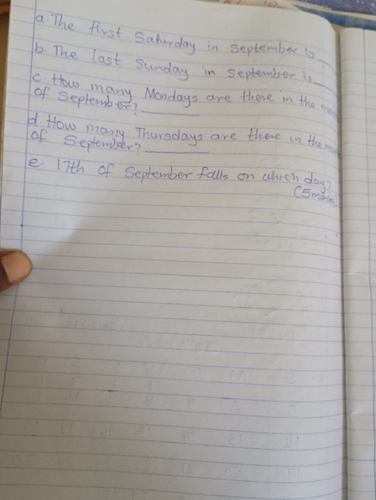 a. The first Saturday in September is
b. The last Sunday in September is
c. How many Mondays are there in the
of September?
d. How many Thursdays are there in the
of September?
e. 17th of September falls on which day?
(5marks)